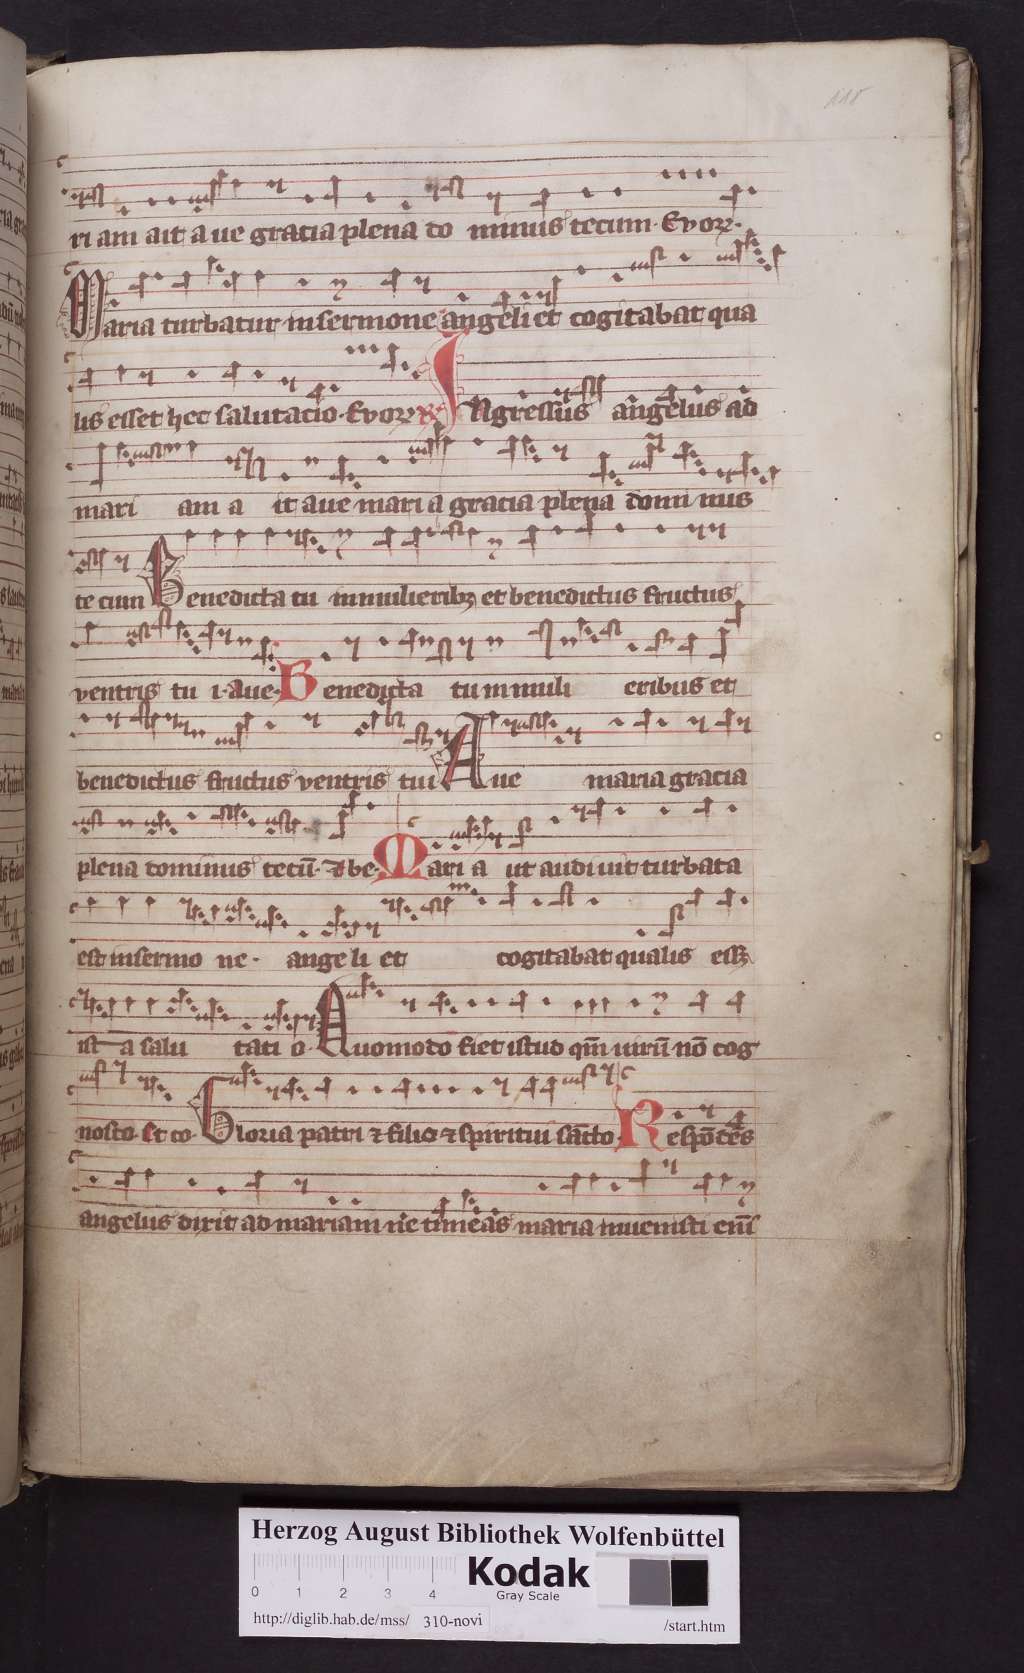 118
ri am ait a ue gracia plena do minus tecum. Evov.
Maria turbatur in sermone angeli et cogitabat qua
lis esset hec salutacio. Evov R. INgressus angelus ad
mari am a it aue mari a gracia plena domi nus
te cum Benedicta tu in mulieribꝫ et benedictus fructus
ventris tu i. aue. Benedicta tu in muli eribus et
benedictus fructus ventris tui Aue maria gracia
plena dominus tecū. be. Mari a ut audiuit turbata
est in sermo ne. ange li et cogitabat qualis
ist a salu tati o. Quomodo fiet istud qm̄ uirū nō cog
nosco. Et co. Gloria patri ⁊ filio ⁊ spiritui sācto Respōdēs
angelus dixit ad mariam ne timeas maria inuenisti eni
Herzog August Bibliothek Wolfenbüttel
Kodak
Gray Scale
0 1 2 3 4
http://diglib.hab.de/mss/ 310-novi /start.htm